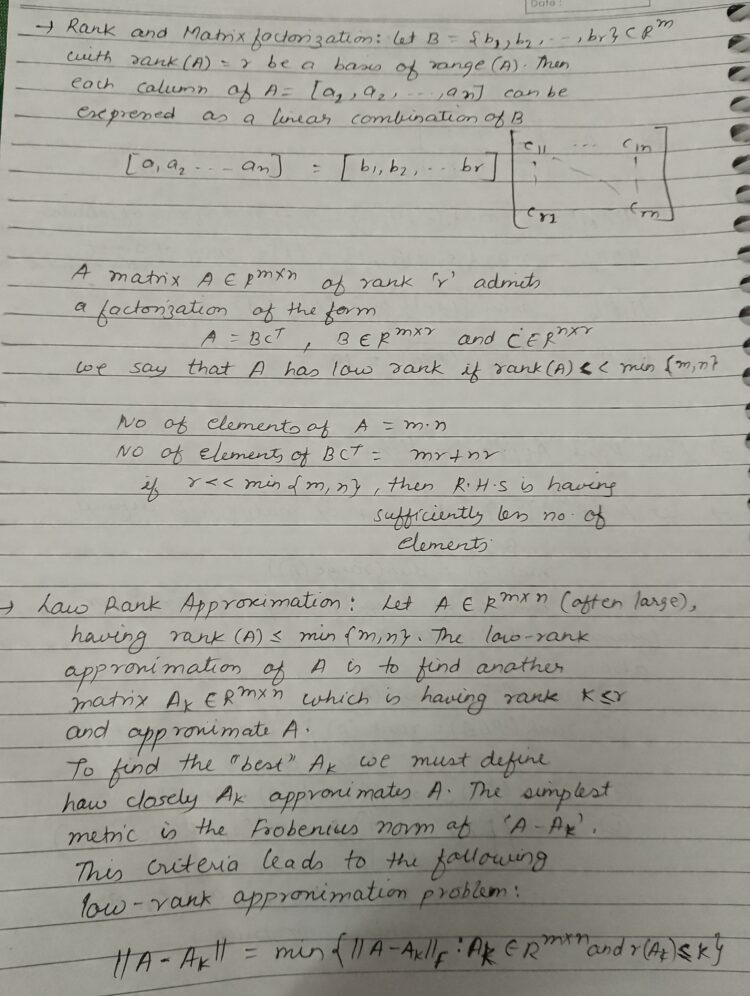 Date:
→ Rank and Matrix factorization: Let B = {b₁, b₂, ..., br} ⊂ Rᵐ
with rank(A) = r be a basis of range(A). Then
each column of A = [a₁, a₂, ..., an] can be
expressed as a linear combination of B
[a₁ a₂ ... an] = [b₁, b₂, ... br] [c₁₁ ... c₁n
cr₁ crn]
A matrix A ∈ R^m×n of rank 'r' admits
a factorization of the form
A = BCᵀ, B ∈ R^m×r and C ∈ R^n×r
we say that A has low rank if rank(A) << min {m,n}
No of elements of A = m·n
No of elements of BCᵀ = mr+nr
if r << min{m,n}, then R.H.S is having
sufficiently less no. of
elements.
→ Low Rank Approximation: Let A ∈ R^m×n (often large),
having rank(A) ≤ min{m,n}. The low-rank
approximation of A is to find another
matrix Ak ∈ R^m×n which is having rank K ≤ r
and approximate A.
To find the "best" Ak we must define
how closely Ak approximates A. The simplest
metric is the Frobenius norm of 'A-Ak'.
This criteria leads to the following
low-rank approximation problem:
||A-Ak|| = min{||A-Ak||F : Ak ∈ R^m×n and r(Ak) ≤ K}